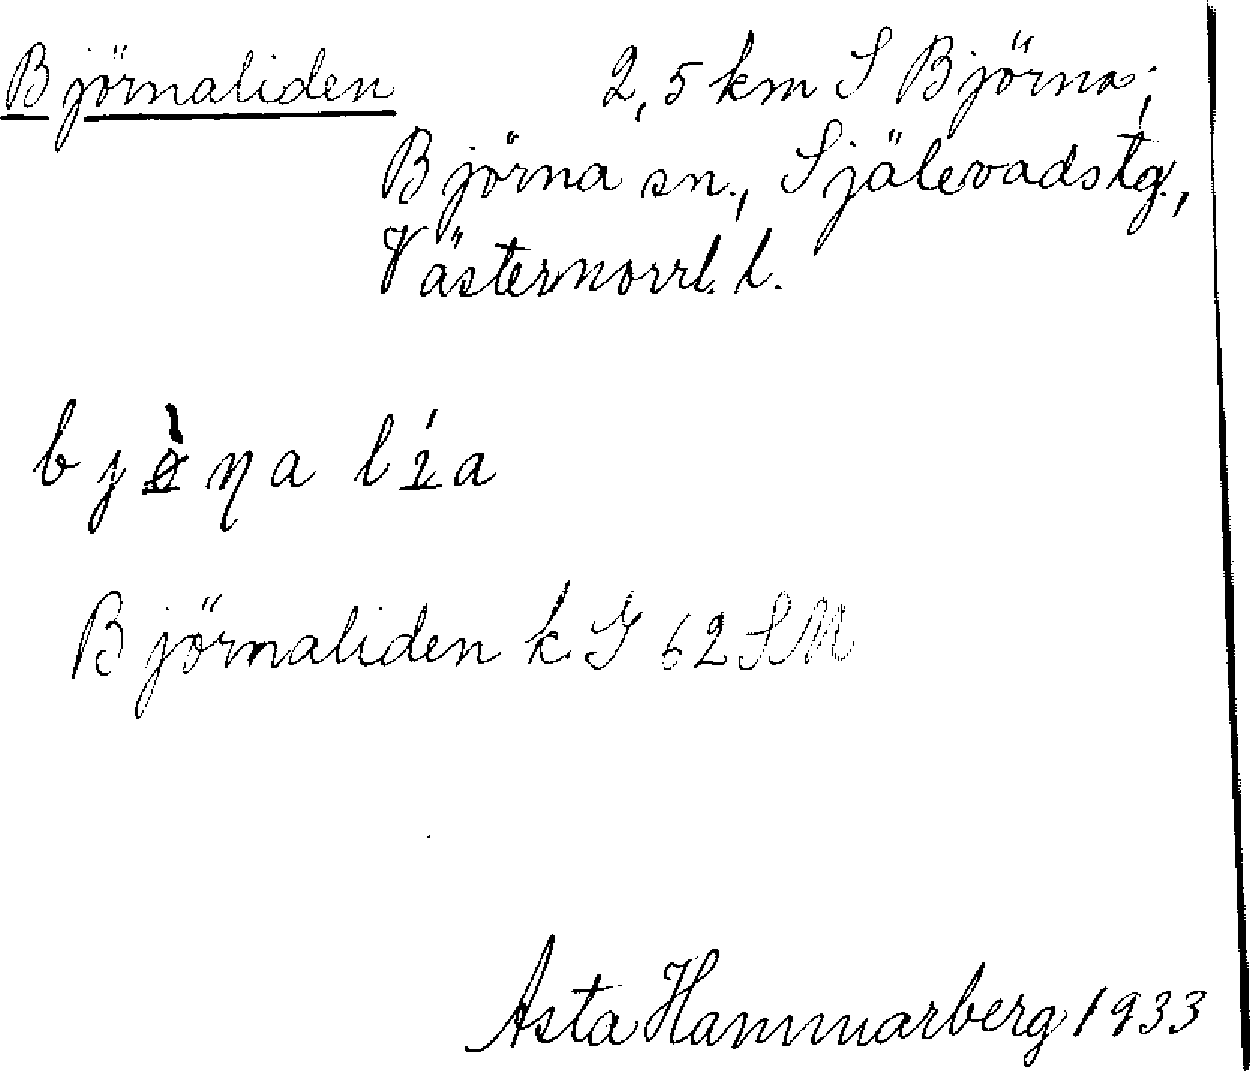 Björnaliden 2,5 km S Björna;
Björna sn., Själevads tg.,
Västernorrl. l.
Björnaliden k. G 62 SM
Asta Hammarberg 1933